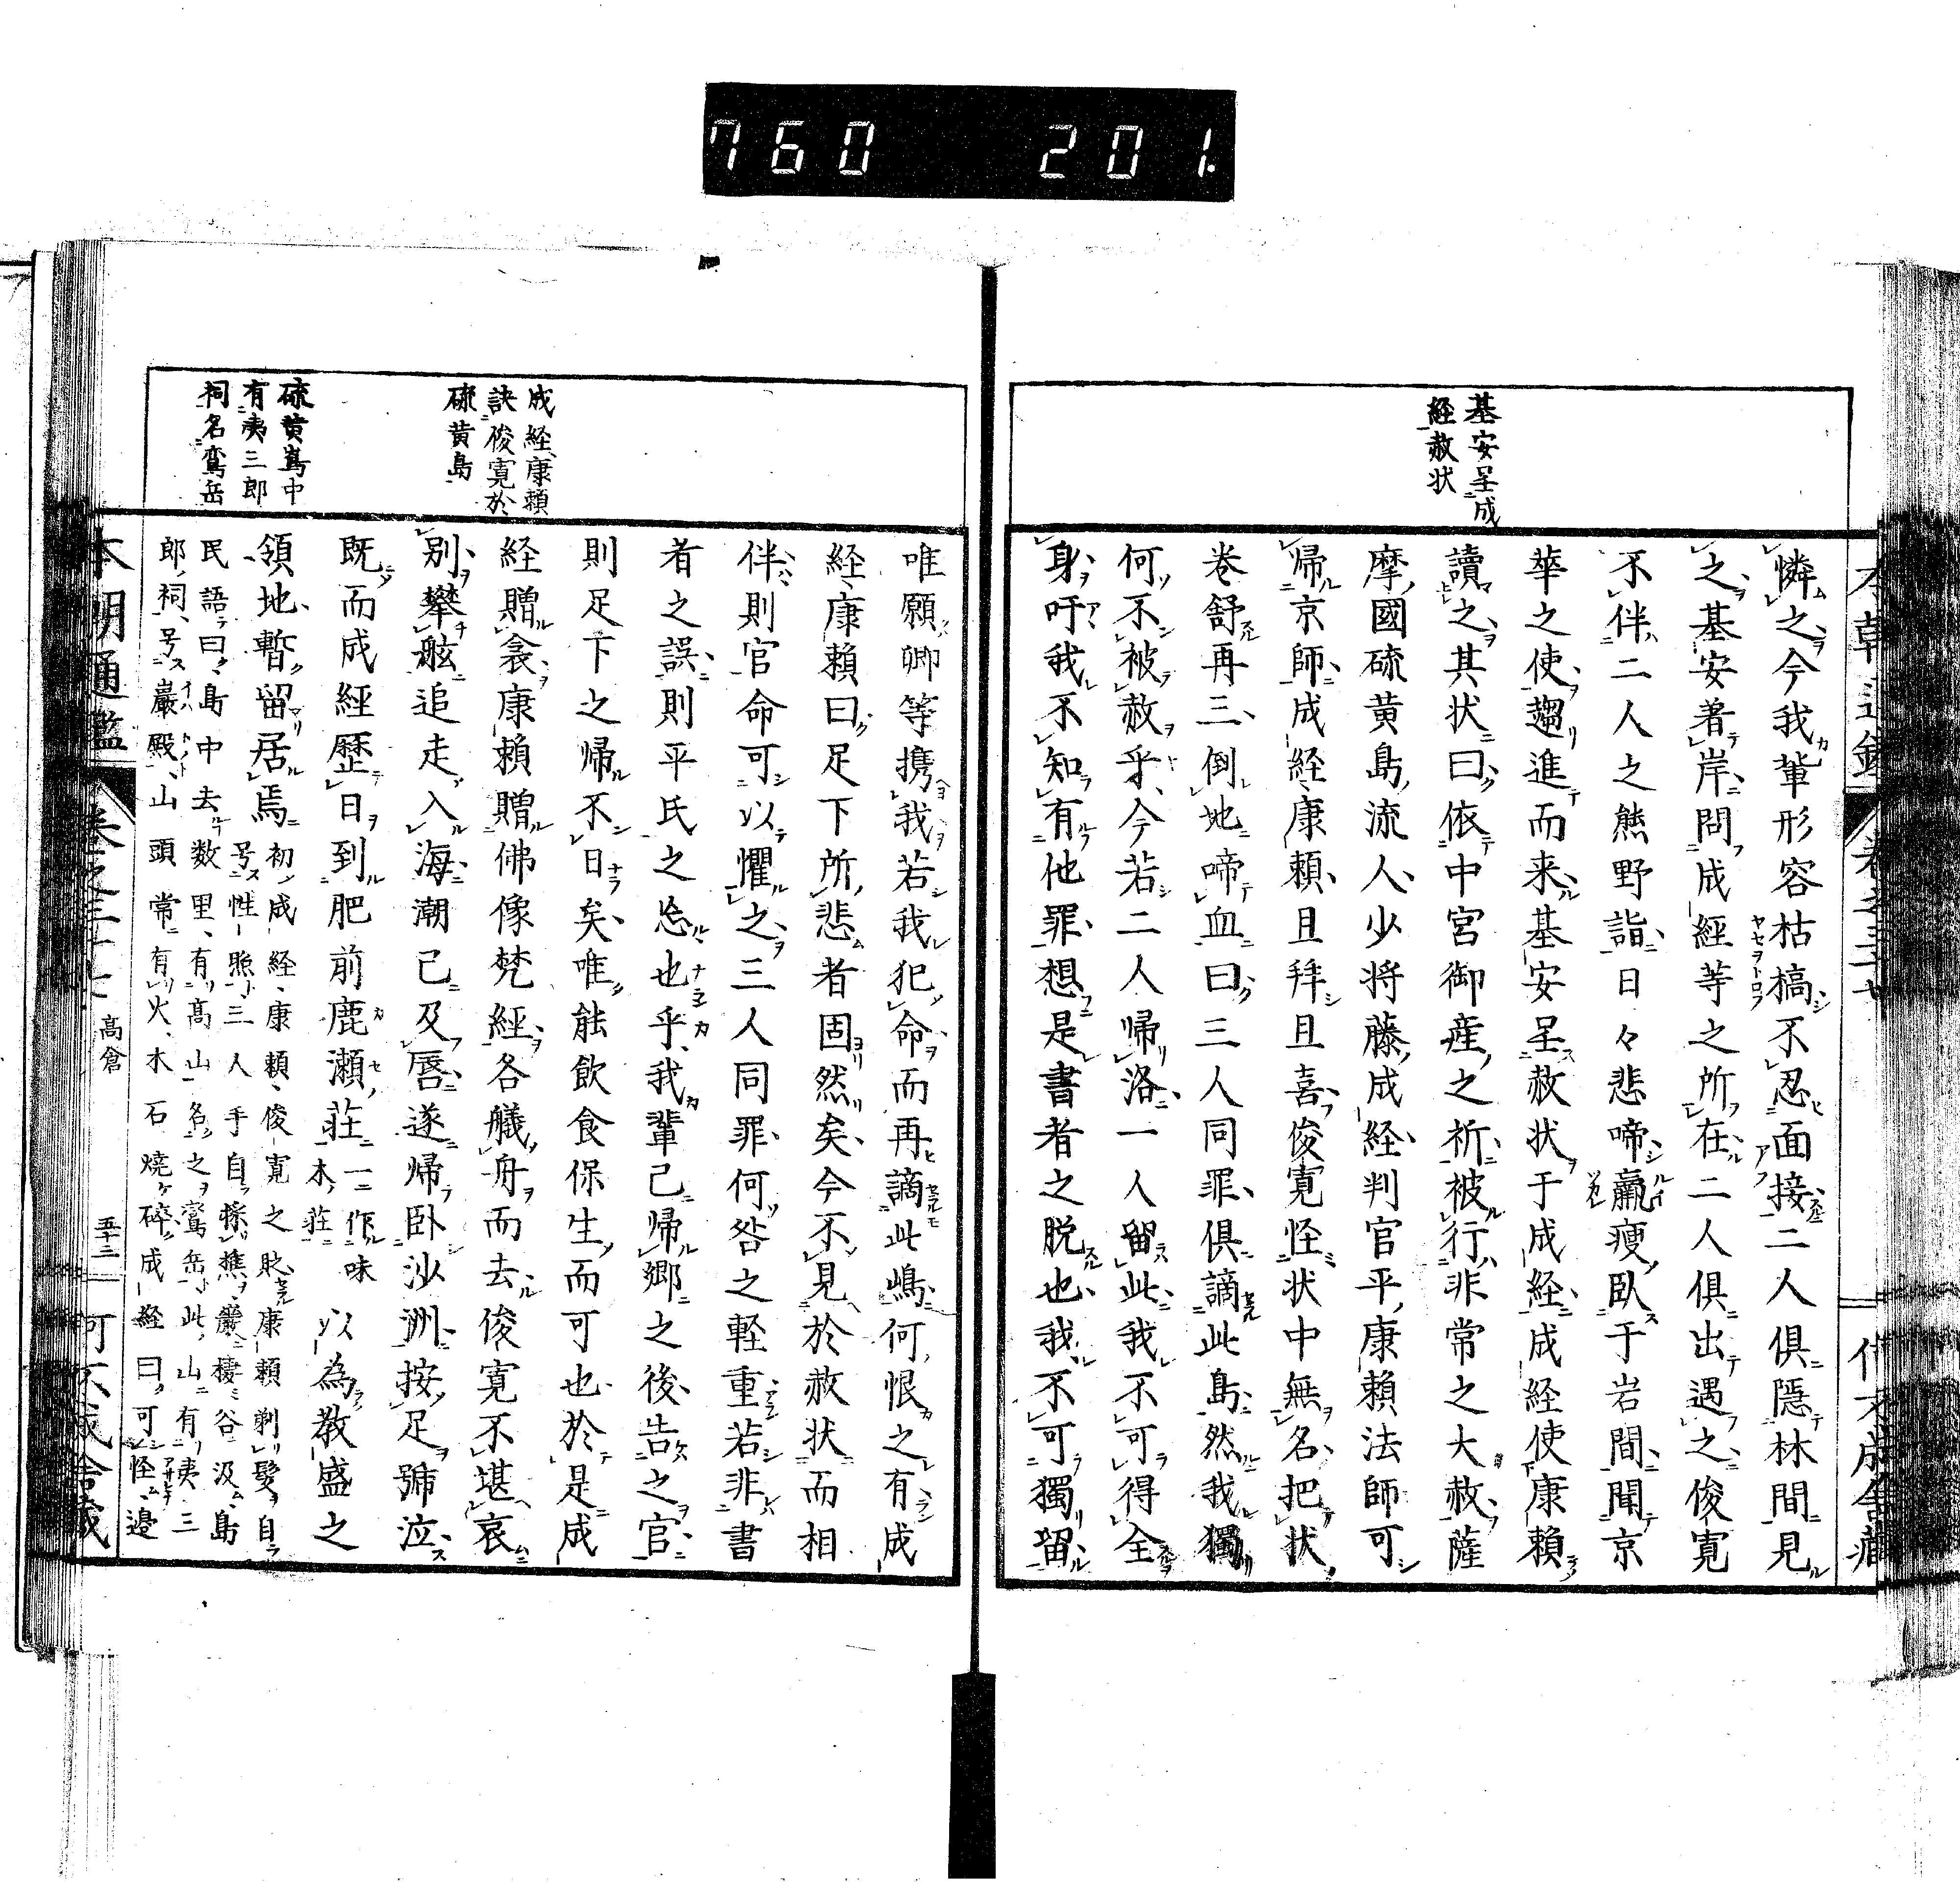 760 201.
基安呈成
経赦状
憐之今我輩形容枯槁不忍面接二人俱隱林間見
之基安着岸問成經等之所在二人俱出遇之俊寛
不伴二人之熊野詣日々悲啼羸瘦臥于岩間聞京
華之使趨進而来基安呈赦状于成経成経使康頼
讀之其状曰依中宮御産之祈被行非常之大赦薩
摩國硫黄島流人少将藤成経判官平康頼法師可
帰京師成経康頼且拜且喜俊寛怪状中無名把状
卷舒再三倒地啼血曰三人同罪俱謫此島然我獨
何不被赦乎今若二人帰洛一人留此我不可得全
身吁我不知有他罪想是書者之脱也我不可獨留
成経康頼
訣俊寛於
硫黄島
硫黄嶌中
有夷三郎
祠名鸞岳
唯願卿等携我若我犯命而再謫此嶋何恨之有成
経康頼曰足下所悲者固然矣今不見於赦状而相
伴則官命可以懼之三人同罪何咎之軽重若非書
者之誤則平氏之忩也乎我輩已帰郷之後告之官
則足下之帰不日矣唯能飲食保生而可也於是成
経贈衾康頼贈佛像梵経各艤舟而去俊寛不堪哀
別攀舷追走入海潮已及唇遂帰卧沙洲按足號泣
既而成経歴日到肥前鹿瀬荘一作味木荘以為教盛之
領地暫留居焉初成経康頼俊寛之貶康頼剃髪自
号性照三人手自採樵巖棲谷汲島
民語曰島中去数里有高山名之鸞岳此山有夷三
郎祠号巖殿山頭常有火木石燒碎成経曰可怪邊
本朝通鑑 卷之三十七 高倉 五十二